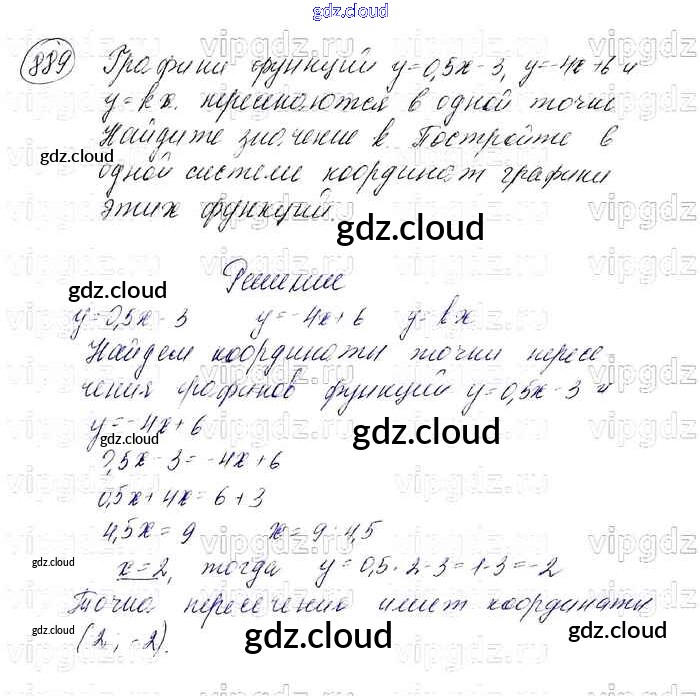 gdz.cloud
889 Графики функций y=0,5x-3, y=-4x+6 и
y=kx пересекаются в одной точке
Найдите значение k. Постройте в
одной системе координат графики
этих функций.
Решение
y=0,5x-3 y=-4x+6 y=kx
Найдем координаты точки пересе
чения графиков функций y=0,5x-3 и
y=-4x+6
0,5x-3=-4x+6
0,5x+4x=6+3
4,5x=9 x=9:4,5
x=2, тогда y=0,5·2-3=1-3=-2
Точка пересечения имеет координаты
(2; -2).
gdz.cloud
gdz.cloud
gdz.cloud
gdz.cloud
gdz.cloud
gdz.cloud
gdz.cloud
gdz.cloud
gdz.cloud
gdz.cloud